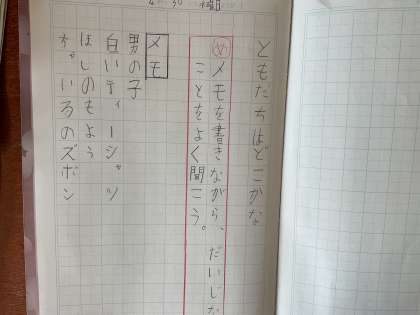 ともだちはどこかな
め メモを書きながら、だいじな
ことをよく聞こう。
メモ
男の子
白いティーシャツ
ほしのもよう
ちゃいろのズボン